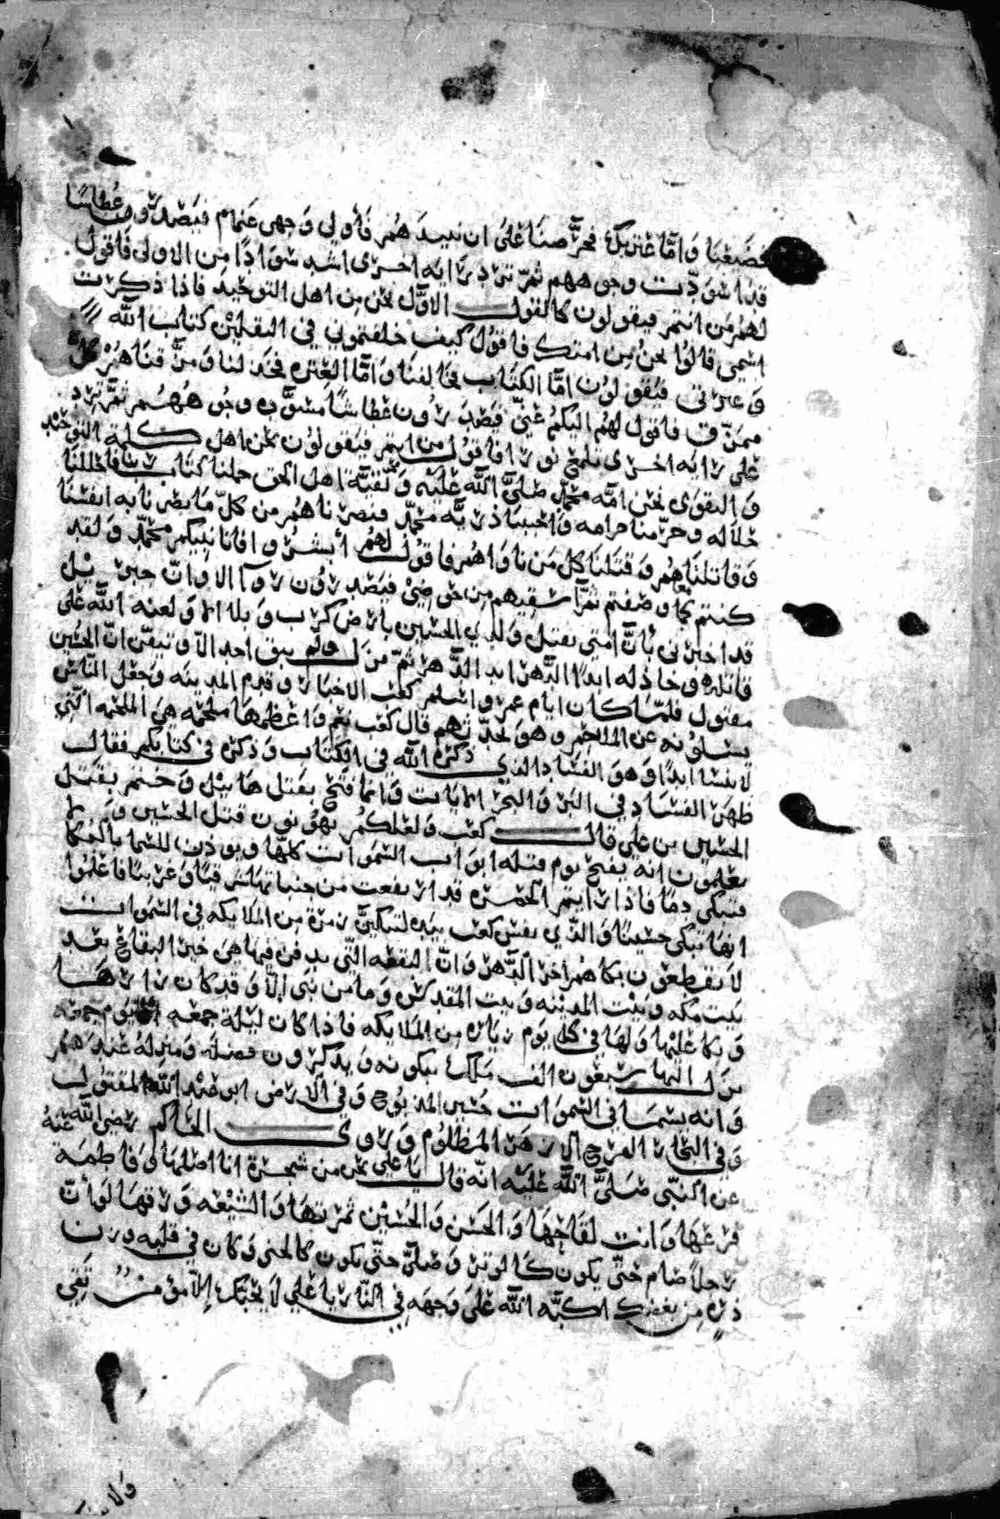 فضيعنا واما عترتك فحرصنا على ان نبيدهم فاولي وجهي عنهم فيصدرون عطاشا
قد اسودت وجوههم ثم ترد راية اخرى اشد سوادا من الاولى فاقول
لهم من انتم فيقولون كالقول الاول نحن من اهل التوحيد فاذا ذكرت
اسمي قالوا نحن من امتك فاقول كيف خلفتموني في الثقلين كتاب الله
وعترتي فيقولون اما الكتاب فخالفنا واما العترة فخذلنا ومزقناهم كل
ممزق فاقول لهم اليكم عني فيصدرون عطاشا مسودة وجوههم ثم ترد
علي راية اخرى تلمع نورا فاقول من انتم فيقولون نحن اهل كلمة التوحيد
والتقوى نحن امة محمد صلى الله عليه ونحن بقية اهل الحق حملنا كتاب ربنا فاحللنا
حلاله وحرمنا حرامه واحببنا ذرية محمد فنصرناهم من كل ما نصرنا به انفسنا
وقاتلنا معهم وقتلنا كل من ناواهم فاقول لهم ابشروا فانا نبيكم محمد ولقد
كنتم كما وصفتم ثم اسقيهم من حوضي فيصدرون رواء الا وان جبريل
قد اخبرني بان امتي تقتل ولدي الحسين بارض كرب وبلاء الا ولعنة الله على
قاتله وخاذله ابدا الدهر ابد الدهر ثم نزل ولم يبق احد الا وتيقن ان الحسين
مقتول فلما كان ايام عمر واسلم كعب الاحبار وقدم المدينة وجعل الناس
يسئلونه عن الملاحم وهو يحدثهم قال كعب نعم واعظمها ملحمة هي الملحمة التي
لا تنسا ابدا وهو الفساد الذي ذكره الله في الكتاب وذكره في كتابكم فقال
ظهر الفساد في البر والبحر الايات وانما فتح بقتل هابيل وختم بقتل
الحسين بن علي قال كعب ولعلكم تهونون قتل الحسين ولم
تعلمون انه يفتح يوم قتله ابواب السموات كلها ويوذن للسما بالبكا
فتبكي دما فاذا رايتم الحمرة قد ارتفعت من جنباتها شرقيا وغربيا فاعلموا
انها تبكي حسينا والذي نفس كعب بيده لتبكين زمرة من الملايكه في السموات
لا يقطعون بكاهم اخر الدهر وان البقعه التي يدفن فيها هي خير البقاع بعد
بيت مكه وبيت المدينه وبيت المقدس وما من نبي الا وقد كان زارها
وبكا عليها ولها في كل يوم زياره من الملايكه فاذا كان ليلة جمعه او يوم جمعه
نزل اليها سبعون الف ملك يبكونه ويذكرون فضله ومنزله عندهم
وانه يسما في السموات حسين المذبوح وفي الارض ابو عبد الله المقتول
وفي البحار الفرخ الازهر المظلوم وروى الحاكم رضي الله عنه
عن النبي صلى الله عليه انه قال يا علي نحن من شجرة انا اصلها وفاطمه
فرعها وانت لقاحها والحسن والحسين ثمرتها والشيعه ورقها لو ان
رجلا صام حتى يكون كالوتر وصلى حتى يكون كالحنى وكان في قلبه وزن
ذره من بغضك اكبه الله على وجهه في النار يا علي لا يحبك الا مؤمن تقي
ولا